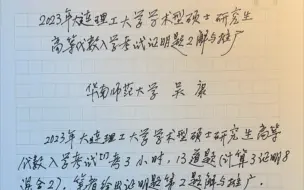 2023年大连理工大学学术型硕士研究生
高等代数入学考试证明题2解与推广
华南师范大学 吴康
2023年大连理工大学学术型硕士研究生高等
代数入学考试[1]考3小时,13道题(计算3证明8
混合2),笔者给出证明题第2题解与推广